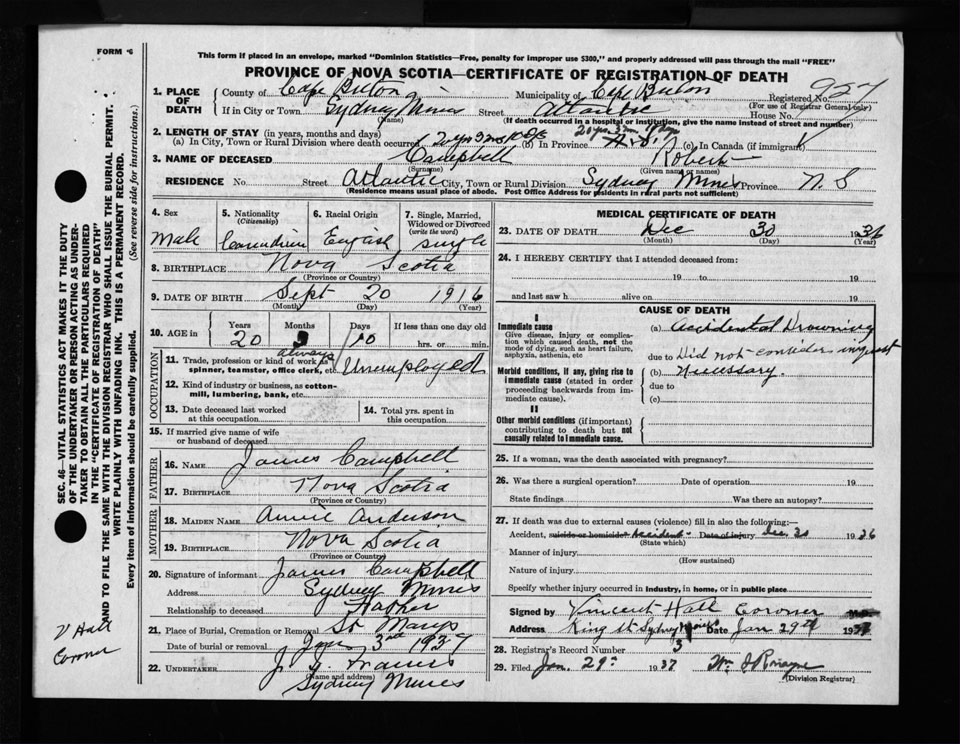 FORM 6
This form if placed in an envelope, marked "Dominion Statistics—Free, penalty for improper use $300," and properly addressed will pass through the mail "FREE"
PROVINCE OF NOVA SCOTIA—CERTIFICATE OF REGISTRATION OF DEATH
1. PLACE OF DEATH
County of Cape Breton Municipality of Cape Breton Registered No. 927
(For use of Registrar General only)
If in City or Town Sydney Mines Street Atlantic House No.
(Name) (If death occurred in a hospital or institution, give the name instead of street and number)
2. LENGTH OF STAY (in years, months and days)
(a) In City, Town or Rural Division where death occurred (b) In Province (c) In Canada (if immigrant)
3. NAME OF DECEASED Campbell Robert
(Surname) (Given name or names)
RESIDENCE No. Street Atlantic City, Town or Rural Division Sydney Mines Province N. S
(Residence means usual place of abode. Post Office Address for residents in rural parts not sufficient)
4. Sex Male
5. Nationality (Citizenship) Canadian
6. Racial Origin English
7. Single, Married, Widowed or Divorced (write the word) single
8. BIRTHPLACE Nova Scotia
(Province or Country)
9. DATE OF BIRTH Sept 20 1916
(Month) (Day) (Year)
10. AGE in Years Months Days If less than one day old
20 3 10 hrs. or min.
OCCUPATION
11. Trade, profession or kind of work as spinner, teamster, office clerk, etc. always Unemployed
12. Kind of industry or business, as cotton-mill, lumbering, bank, etc.
13. Date deceased last worked at this occupation
14. Total yrs. spent in this occupation
15. If married give name of wife or husband of deceased
FATHER
16. NAME James Campbell
17. BIRTHPLACE Nova Scotia
(Province or Country)
MOTHER
18. MAIDEN NAME Annie Anderson
19. BIRTHPLACE Nova Scotia
(Province or Country)
20. Signature of informant James Campbell
Address Sydney Mines
Relationship to deceased Father
21. Place of Burial, Cremation or Removal St Marys
Date of burial or removal Jan 3rd 1937
22. UNDERTAKER J. Francis
(Name and address)
Sydney Mines
MEDICAL CERTIFICATE OF DEATH
23. DATE OF DEATH Dec 30 1936
(Month) (Day) (Year)
24. I HEREBY CERTIFY that I attended deceased from:
19 to 19
and last saw h alive on 19
CAUSE OF DEATH
I
Immediate cause
Give disease, injury or complication which caused death, not the mode of dying, such as heart failure, asphyxia, asthenia, etc
(a) Accidental Drowning
due to Did not consider inquest
Morbid conditions, if any, giving rise to immediate cause (stated in order proceeding backwards from immediate cause).
(b) necessary.
due to
(c)
II
Other morbid conditions (if important) contributing to death but not causally related to immediate cause.
25. If a woman, was the death associated with pregnancy?
26. Was there a surgical operation? Date of operation 19
State findings Was there an autopsy?
27. If death was due to external causes (violence) fill in also the following:—
Accident, suicide or homicide? Accident Date of injury Dec 30 1936
(State which)
Manner of injury
(How sustained)
Nature of injury
Specify whether injury occurred in industry, in home, or in public place
Signed by Vincent Hall Coroner M.D.
Address King St Sydney Mines Date Jan 29th 1937
28. Registrar's Record Number 3
29. Filed Jan. 29" 1937
(Division Registrar)
SEC. 46—VITAL STATISTICS ACT MAKES IT THE DUTY OF THE UNDERTAKER OR PERSON ACTING AS UNDERTAKER TO OBTAIN ALL THE PARTICULARS REQUIRED IN THE "CERTIFICATE OF REGISTRATION OF DEATH" AND TO FILE THE SAME WITH THE DIVISION REGISTRAR WHO SHALL ISSUE THE BURIAL PERMIT.
WRITE PLAINLY WITH UNFADING INK. THIS IS A PERMANENT RECORD.
Every item of information should be carefully supplied. (See reverse side for instructions.)
V Hall
Coroner